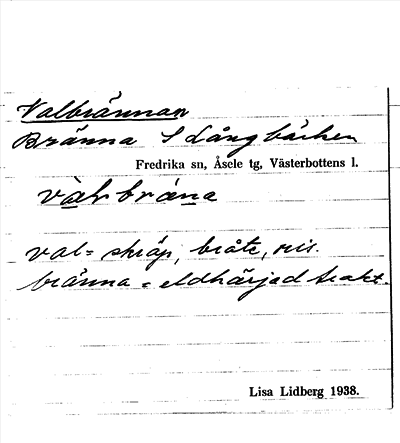 Valbrännan
Bränna S Långbäcken
Fredrika sn, Åsele tg, Västerbottens l.
val= skräp, bråte, ris.
bränna = eldhärjad trakt.
Lisa Lidberg 1938.